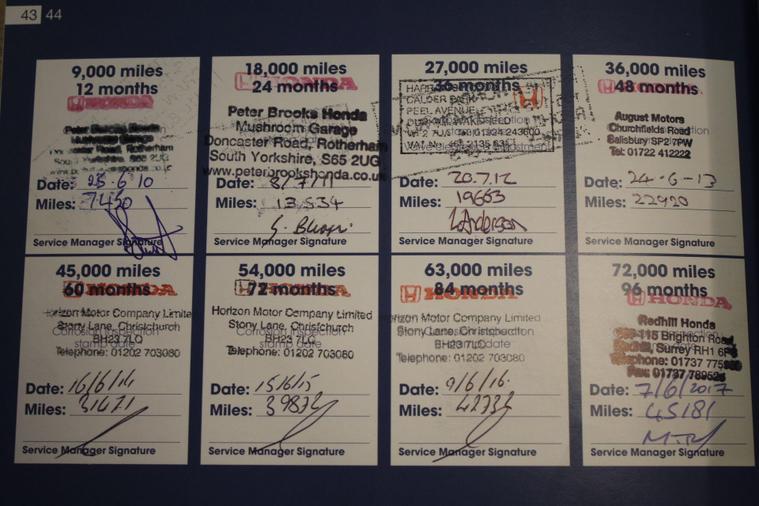 43 44
9,000 miles
12 months
HONDA
Date: 25·6·10
Miles: 7450
Service Manager Signature
18,000 miles
24 months
HONDA
Peter Brooks Honda
Mushroom Garage
Doncaster Road, Rotherham
South Yorkshire, S65 2UG
www.peterbrookshonda.co.uk
Date: 8/7/11
Miles: 13534
Service Manager Signature
27,000 miles
36 months
CALDER
PEEL AVENUE
Date: 20.7.12
Miles: 19663
Service Manager Signature
36,000 miles
48 months
August Motors
Churchfields Road
Salisbury SP2 7PW
Tel: 01722 412222
Date: 24·6-13
Miles: 22920
Service Manager Signature
45,000 miles
60 months
HONDA
Horizon Motor Company Limited
Stony Lane, Christchurch
BH23 7LQ
Telephone: 01202 703080
Date: 16/6/14
Miles: 31471
Service Manager Signature
54,000 miles
72 months
HONDA
Horizon Motor Company Limited
Stony Lane, Christchurch
BH23 7LQ
Telephone: 01202 703080
Date: 15/6/15
Miles: 39832
Service Manager Signature
63,000 miles
84 months
HONDA
Horizon Motor Company Limited
Stony Lane, Christchurch
BH23 7LQ
Telephone: 01202 703080
Date: 9/6/16.
Miles: 42732
Service Manager Signature
72,000 miles
96 months
HONDA
Redhill Honda
Brighton Road
Surrey RH1
Date: 7/6/2017
Miles: 45181
Service Manager Signature